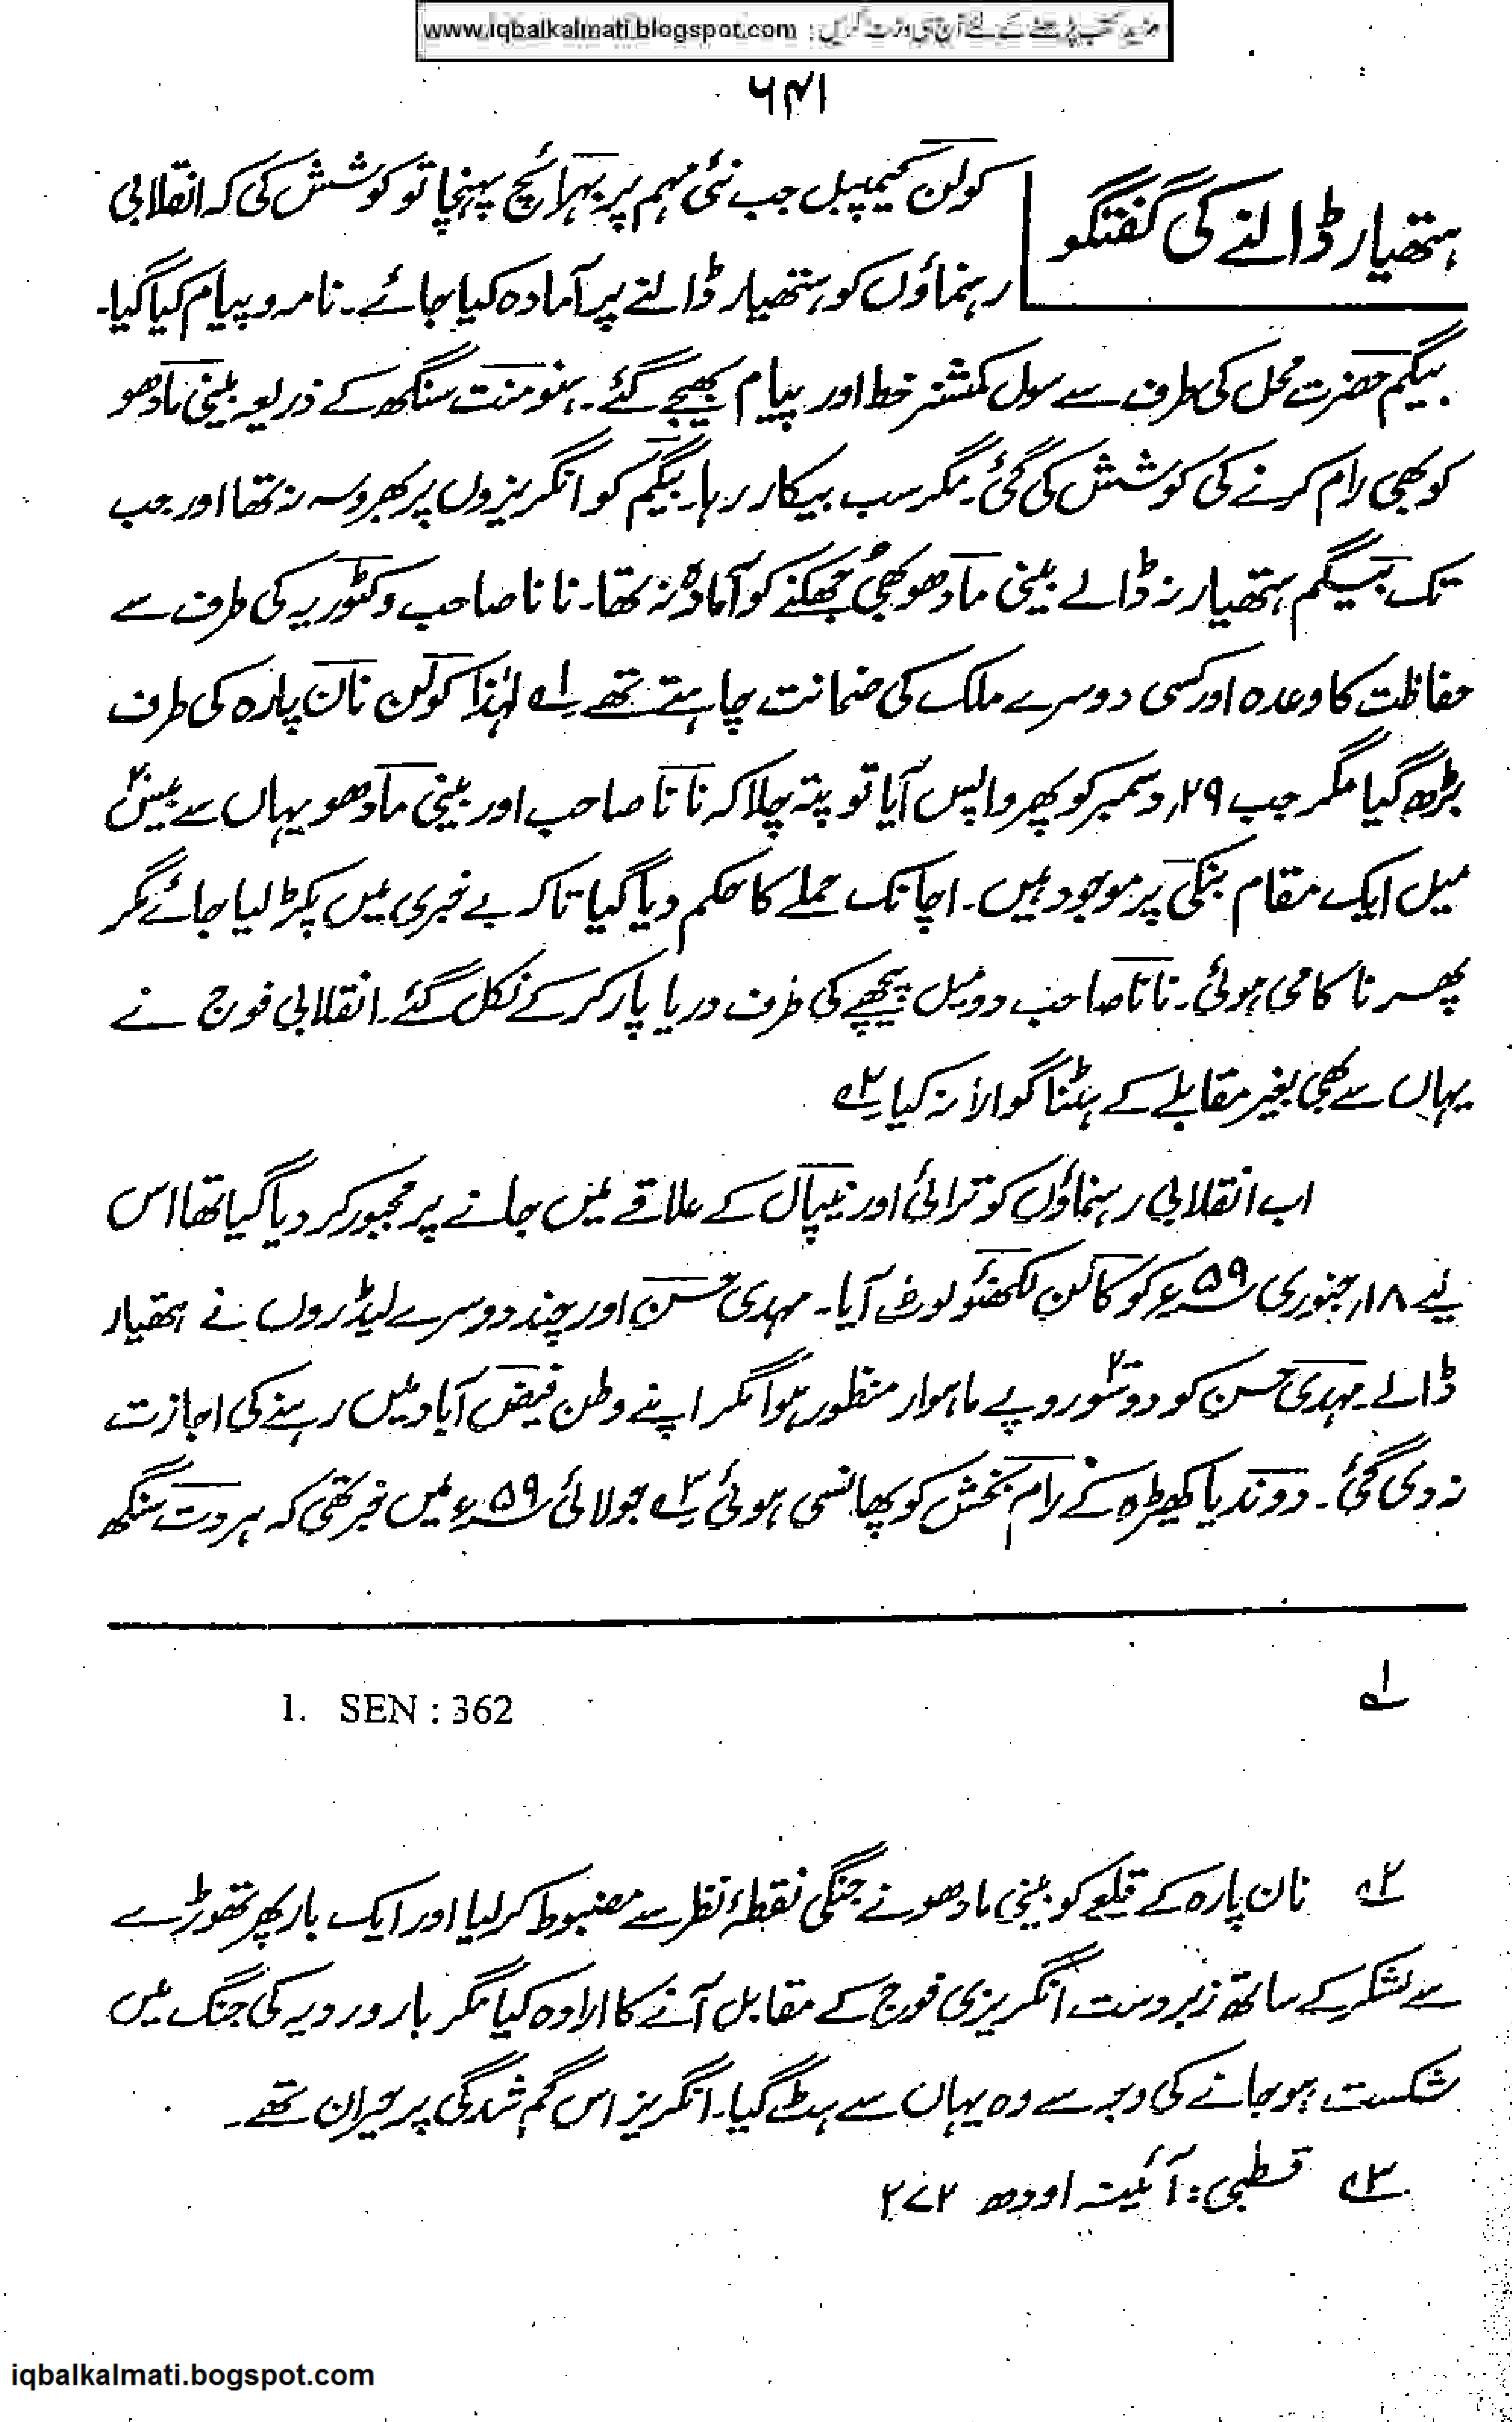 مزید کتب پڑھنے کے لئے آج ہی وزٹ کریں : www.iqbalkalmati.blogspot.com
۶۴۱
ہتھیار ڈالنے کی گفتگو
کولن کیمپبل جب نئی مہم پر بہرائچ پہنچا تو کوشش کی کہ انقلابی
رہنماؤں کو ہتھیار ڈالنے پر آمادہ کیا جائے۔ نامہ و پیام کیا گیا۔
بیگم حضرت محل کی طرف سے سول کمشنر خط اور پیام بھیجے گئے۔ ہنومنت سنگھ کے ذریعہ بینی مادھو
کو بھی رام کرنے کی کوشش کی گئی۔ مگر سب بیکار رہا۔ بیگم کو انگریزوں پر بھروسہ نہ تھا اور جب
تک بیگم ہتھیار نہ ڈالے بینی مادھو بھی جھکنے کو آمادہ نہ تھا۔ نانا صاحب وکٹوریہ کی طرف سے
حفاظت کا وعدہ اور کسی دوسرے ملک کی ضمانت چاہتے تھے ۱؎ لہٰذا کولن نان پارہ کی طرف
بڑھ گیا مگر جب ۲۹ دسمبر کو پھر واپس آیا تو پتہ چلا کہ نانا صاحب اور بینی مادھو یہاں سے بیس۲
میل ایک مقام بنکی پر موجود ہیں۔ اچانک حملے کا حکم دیا گیا تاکہ بے خبری میں پکڑ لیا جائے مگر
پھر ناکامی ہوئی۔ نانا صاحب دو میل پیچھے کی طرف دریا پار کر کے نکل گئے۔ انقلابی فوج نے
یہاں سے بھی بغیر مقابلے کے ہٹنا گوارا نہ کیا ۲؎
اب انقلابی رہنماؤں کو ترائی اور نیپال کے علاقے میں جانے پر مجبور کر دیا گیا تھا اس
لیے ۱۸ جنوری ۵۹ء کو کالن لکھنؤ لوٹ آیا۔ مہدی حسن اور چند دوسرے لیڈروں نے ہتھیار
ڈالے۔ مہدی حسن کو دو۲ سو روپے ماہوار منظور ہوا مگر اپنے وطن فیض آباد میں رہنے کی اجازت
نہ دی گئی۔ دوندیا کھیڑہ کے رام بخش کو پھانسی ہوئی ۳؎ جولائی ۵۹ء میں خبر تھی کہ ہردت سنگھ
۱؎ 1. SEN : 362
۲؎ نان پارہ کے قلعے کو بینی مادھو نے جنگی نقطۂ نظر سے مضبوط کر لیا اور ایک بار پھر تھوڑے
سے لشکر کے ساتھ زبردست انگریزی فوج کے مقابل آنے کا ارادہ کیا مگر باروردیہ کی جنگ میں
شکست ہو جانے کی وجہ سے وہ یہاں سے ہٹ گیا۔ انگریز اس گم شدگی پر حیران تھے۔
۳؎ قسطبی : آئینہ اودھ ۲۷۲
iqbalkalmati.bogspot.com